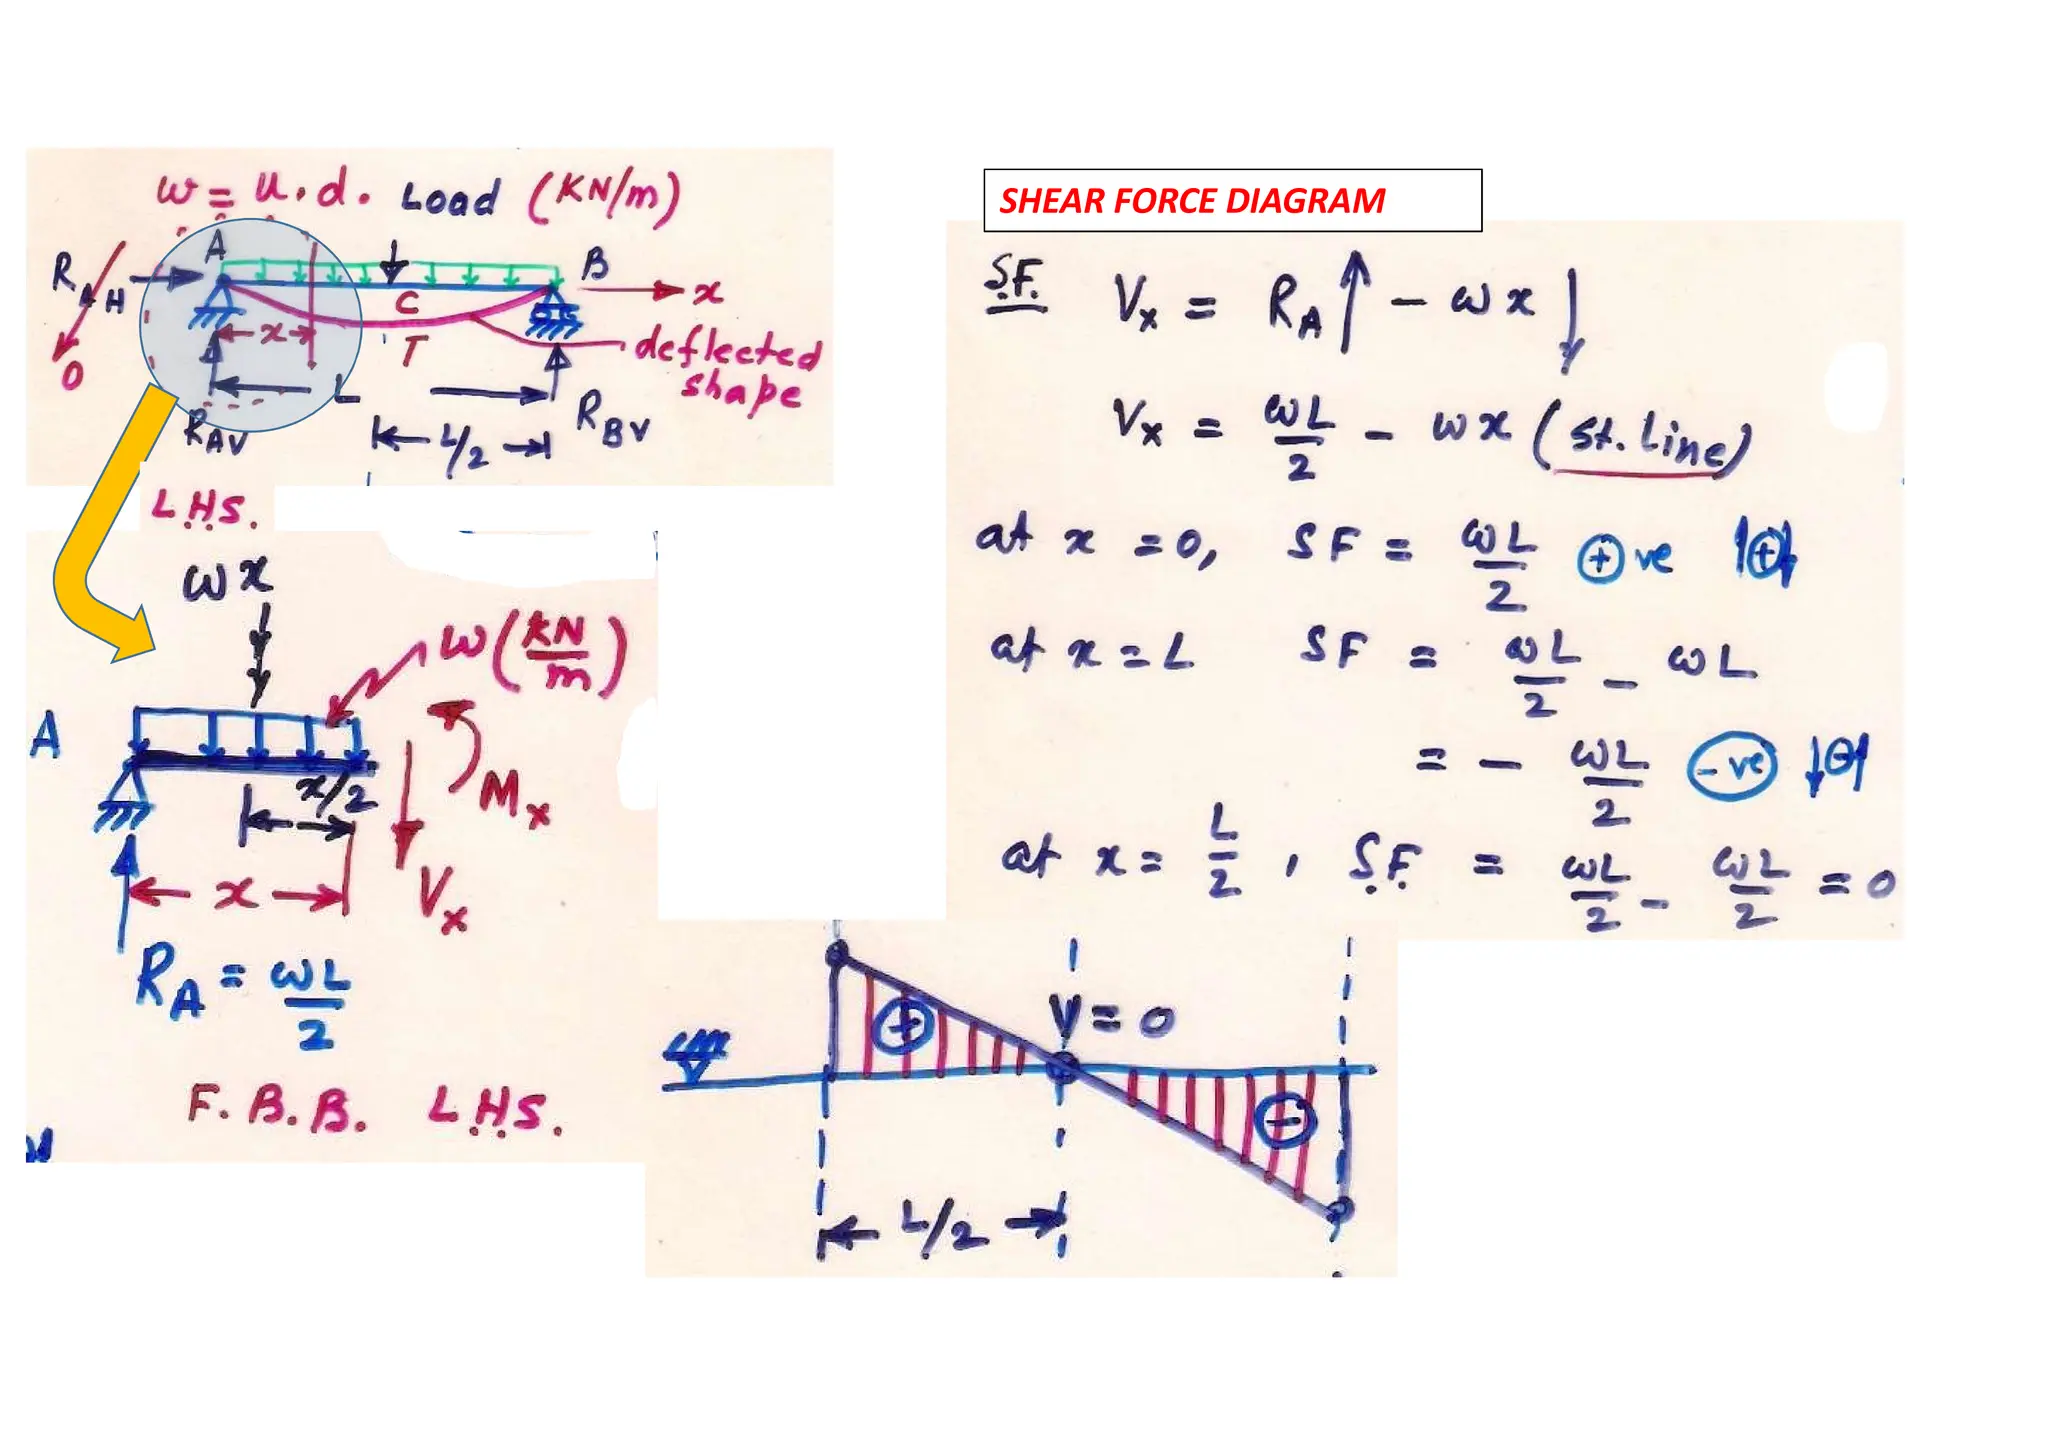 w = u.d. Load (KN/m)
A
B
R_AH
x
C
x
T
deflected
shape
O
L
R_AV
L/2
R_BV
L.H.S.
wx
w (kN/m)
A
x/2
M_x
x
V_x
R_A = wL/2
F.B.B. L.H.S.
SHEAR FORCE DIAGRAM
S.F. V_x = R_A ↑ - wx ↓
V_x = wL/2 - wx (st. Line)
at x = 0, SF = wL/2 ⊕ ve ↑⊕↓
at x = L SF = wL/2 - wL
= - wL/2 (-ve) ↓⊖↑
at x = L/2, S.F. = wL/2 - wL/2 = 0
+
V = 0
-
L/2